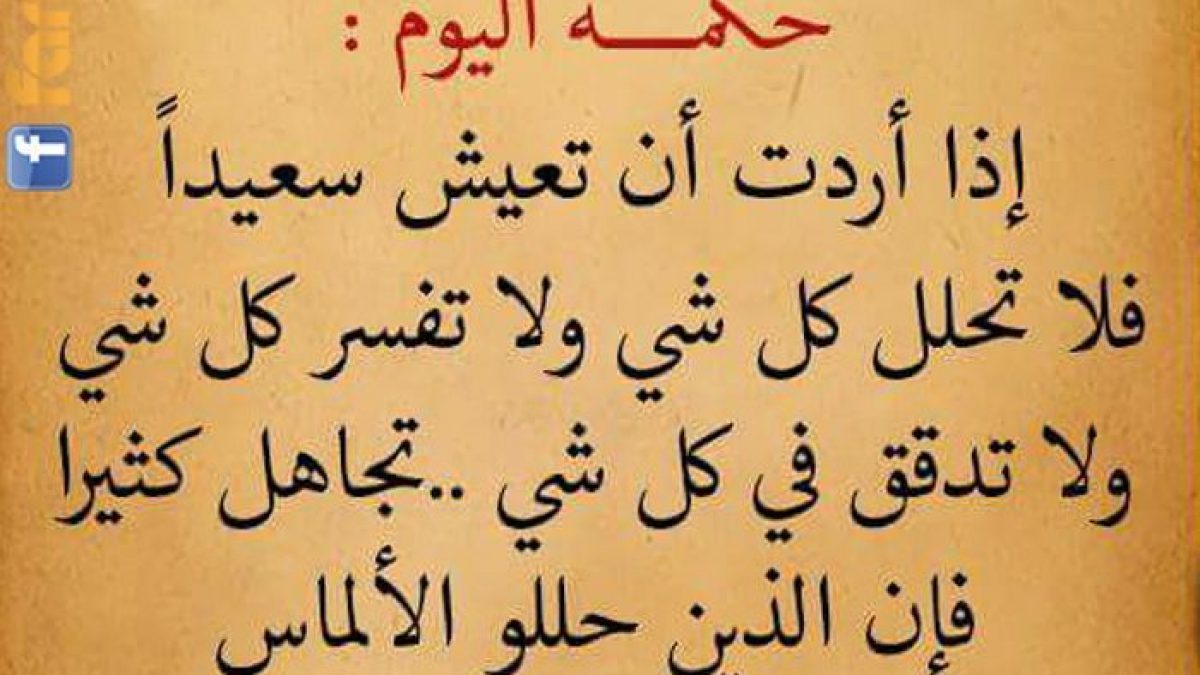 حكمـــه اليوم :
إذا أردت أن تعيش سعيداً
فلا تحلل كل شي ولا تفسر كل شي
ولا تدقق في كل شي ..تجاهل كثيرا
فإن الذين حللو الألماس